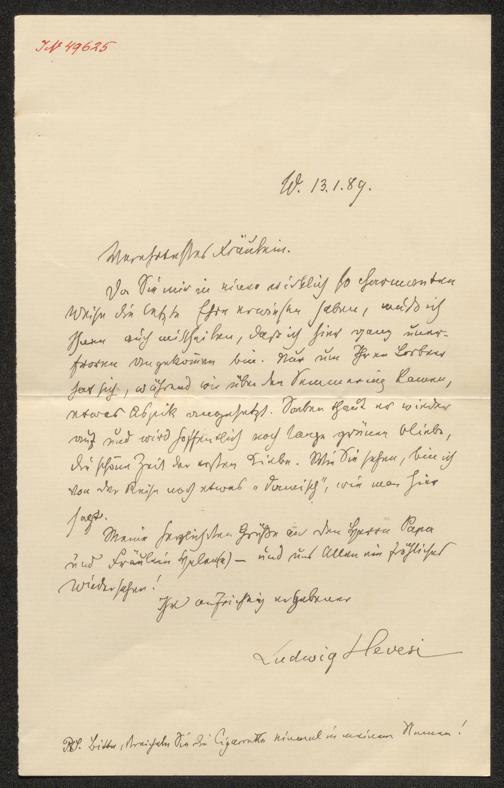 IN 49625
W. 13.1.89.
Verehrtestes Fräulein.
Da Sie mir in einer wirklich so charmanten
Weise die letzte Ehre erwiesen haben, muß ich
Ihnen auch mittheilen, daß ich hier ganz uner-
froren angekommen bin. Nur um Ihren Lorbeer
hat sich, während wir über den Semmering kamen,
etwas Aspik angesetzt. Soeben thaut er wieder
auf und wird hoffentlich noch lange grünen bleibe,
die schöne Zeit der ersten Liebe. Wie Sie sehen, bin ich
von der Reise noch etwas „damisch", wie man hier
sagt.
Meine herzlichsten Grüße an den Herrn Papa
und Fräulein Helene – und uns Allen ein fröhliches
Wiedersehen!
Ihr aufrichtig ergebener
Ludwig Hevesi
PS. Bitte, streicheln Sie die Cigarrette einmal in meinem Namen!